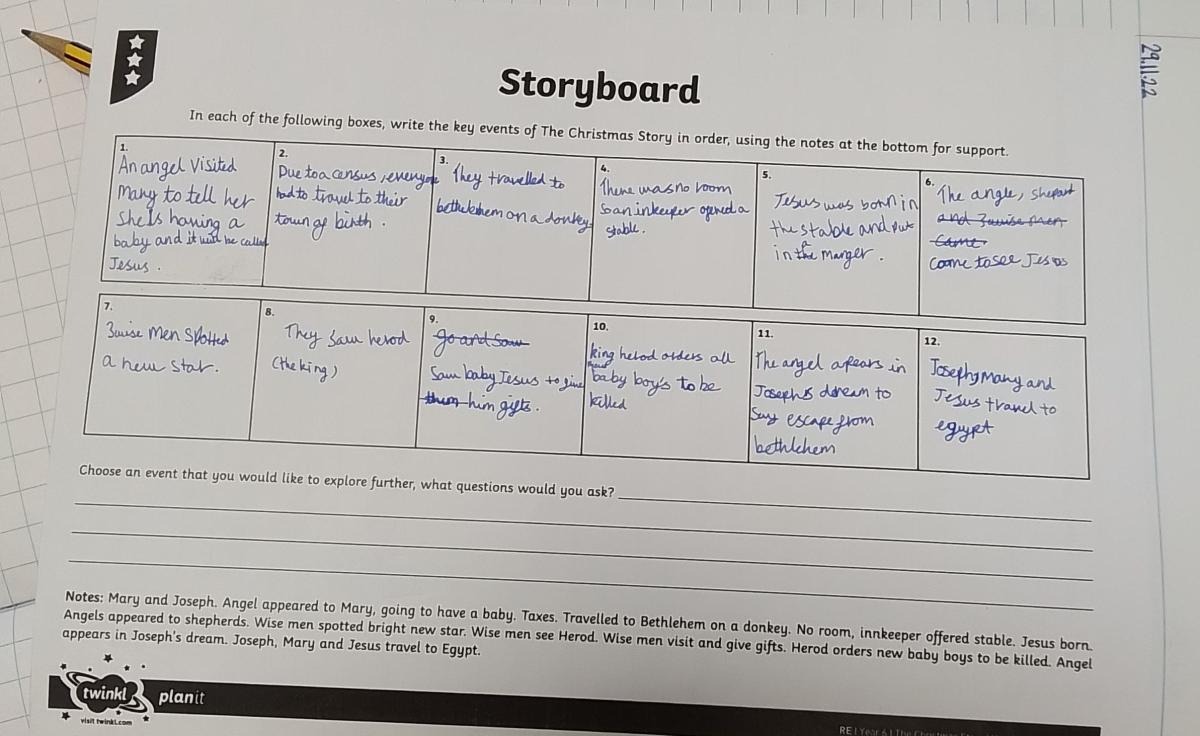 29.11.22
Storyboard
In each of the following boxes, write the key events of The Christmas Story in order, using the notes at the bottom for support.
1.
An angel Visited
Mary to tell her
She is having a
baby and it will be called
Jesus.
2.
Due to a census, everyone
had to travel to their
town of birth.
3.
They travelled to
bethelehem on a donkey
4.
There was no room
So an inkeeper opened a
stable.
5.
Jesus was born in
the stable and put
in the a manger.
6.
The angle, shepard
and 3 wise men
came
come to see Jesus
7.
3 wise men spotted
a new star.
8.
They saw herod
(the king)
9.
go and saw
Saw baby Jesus to give
them him gifts.
10.
king herod orders all
new
baby boy's to be
killed
11.
The angel apears in
Joseph's dream to
Say escape from
bethlehem
12.
Joseph, Mary and
Jesus travel to
egypt
Choose an event that you would like to explore further, what questions would you ask?
Notes: Mary and Joseph. Angel appeared to Mary, going to have a baby. Taxes. Travelled to Bethlehem on a donkey. No room, innkeeper offered stable. Jesus born.
Angels appeared to shepherds. Wise men spotted bright new star. Wise men see Herod. Wise men visit and give gifts. Herod orders new baby boys to be killed. Angel
appears in Joseph's dream. Joseph, Mary and Jesus travel to Egypt.
twinkl
planit
visit twinkl.com
RE | Year 6 | The Christmas